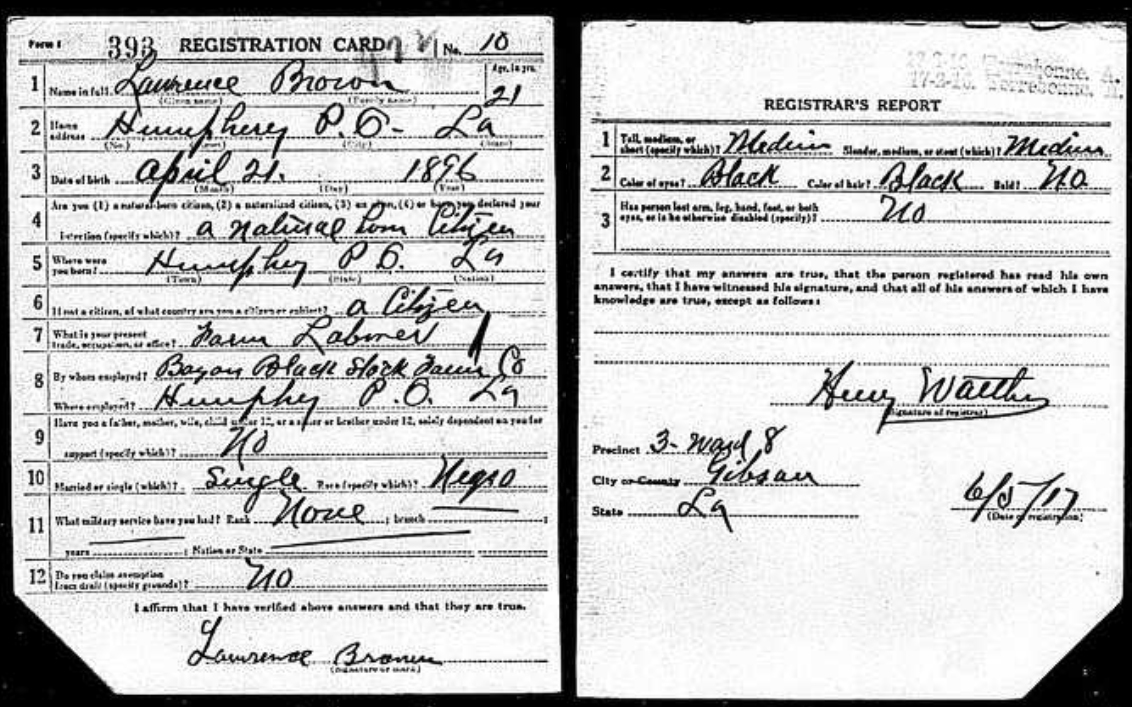 Form 1 393 REGISTRATION CARD No. 10
1 Name in full Lawrence Brown Age, in yrs. 21
(Given name) (Family name)
2 Home address Humpherey P.O. La
(No.) (Street) (City) (State)
3 Date of birth April 21. 1896
(Month) (Day) (Year)
4 Are you (1) a natural-born citizen, (2) a naturalized citizen, (3) an alien, (4) or have you declared your
intention (specify which)? a natural born Citizen
5 Where were you born? Humphey P.O. La
(Town) (State) (Nation)
6 If not a citizen, of what country are you a citizen or subject? a Citizen
7 What is your present trade, occupation, or office? Farm Laborer
8 By whom employed? Bayou Black Stock Farm Co
Where employed? Humphey P.O. La
9 Have you a father, mother, wife, child under 12, or a sister or brother under 12, solely dependent on you for
support (specify which)? No
10 Married or single (which)? Single Race (specify which)? Negro
11 What military service have you had? Rank None ; branch ;
years ; Nation or State
12 Do you claim exemption from draft (specify grounds)? No
I affirm that I have verified above answers and that they are true.
Lawrence Brown
(Signature or mark)
17-2-16. Terrebonne, A.
17-2-16. Terrebonne, A.
REGISTRAR'S REPORT
1 Tall, medium, or short (specify which)? Medium Slender, medium, or stout (which)? Medium
2 Color of eyes? Black Color of hair? Black Bald? No
3 Has person lost arm, leg, hand, foot, or both eyes, or is he otherwise disabled (specify)? No
I certify that my answers are true, that the person registered has read his own
answers, that I have witnessed his signature, and that all of his answers of which I have
knowledge are true, except as follows:
Henry
(Signature of registrar)
Precinct 3- Ward 8
City or County Gibson
State La
6/5/17
(Date of registration)